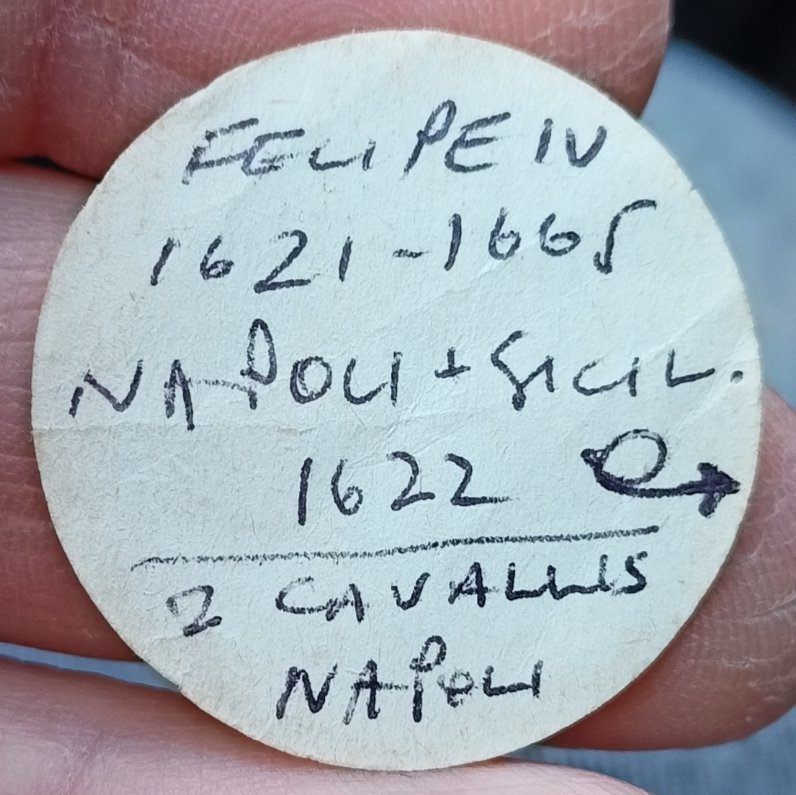 FELIPE IV
1621-1665
NAPOLI + SICIL.
1622
2 CAVALLIS
NAPOLI